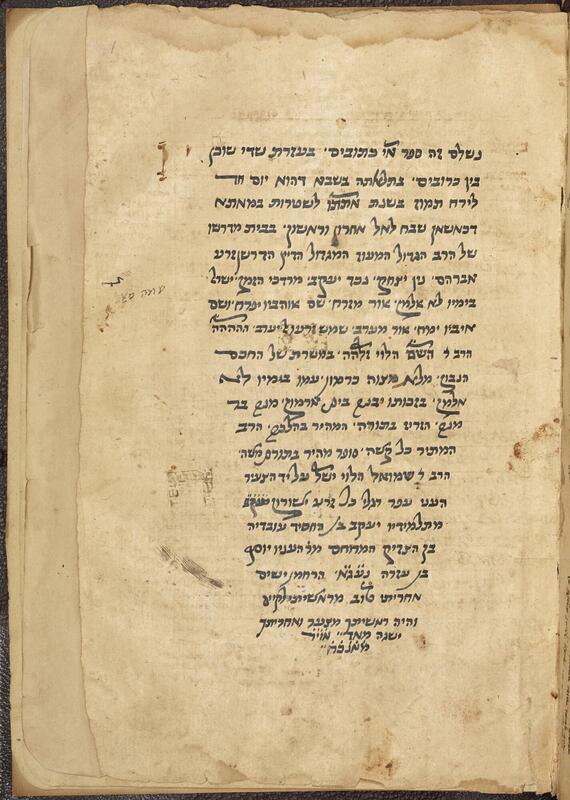 נשלם זה ספר כתובים׳ בעזרת שדי שוכן
בין כרובים׳ בתלאתה בשבא דהוא יום חד
לירח תמוז בשנת לשטרות במאתא
דכאשאן שבח לאל אחרון וראשון׳ בבית מדרשו
של הרב הגדול המעוז המגדול הדיין הדרשן זרע
אברהם׳ נין יצחק׳ נכד יעקב׳ מרדכי הזקן ישר
בימיו לא אלמן׳ אור מזרח׳ שם אוהביו יפרח ושם
איביו ימח׳ אור מערב׳ שמש
הרב ר השם הלוי במשרת של החכם
הנבון׳ מלא מצוה כרמון עמו בימיו לא
אלמן׳ בזכותו יבנה בית ארמון׳ מונה בר
מונה׳ הזריז בתורה׳ המהיר בהלכה׳ הרב
המתיר כל קשה׳ סופר מהיר בתורת משה׳
הרב ר שמואל הלוי יש״ל על יד הצעיר
העני עפר רגלי כל זרע ישורון
מתלמידיו יעקב בן החסיד עובדיה
בן הצדיק המרוחם מר העניו יוסף
בן עזרה הרחמן ישים
אחריתו טוב מראשיתו
והיה ראשיתך מצער ואחריתך
ישגה מאד